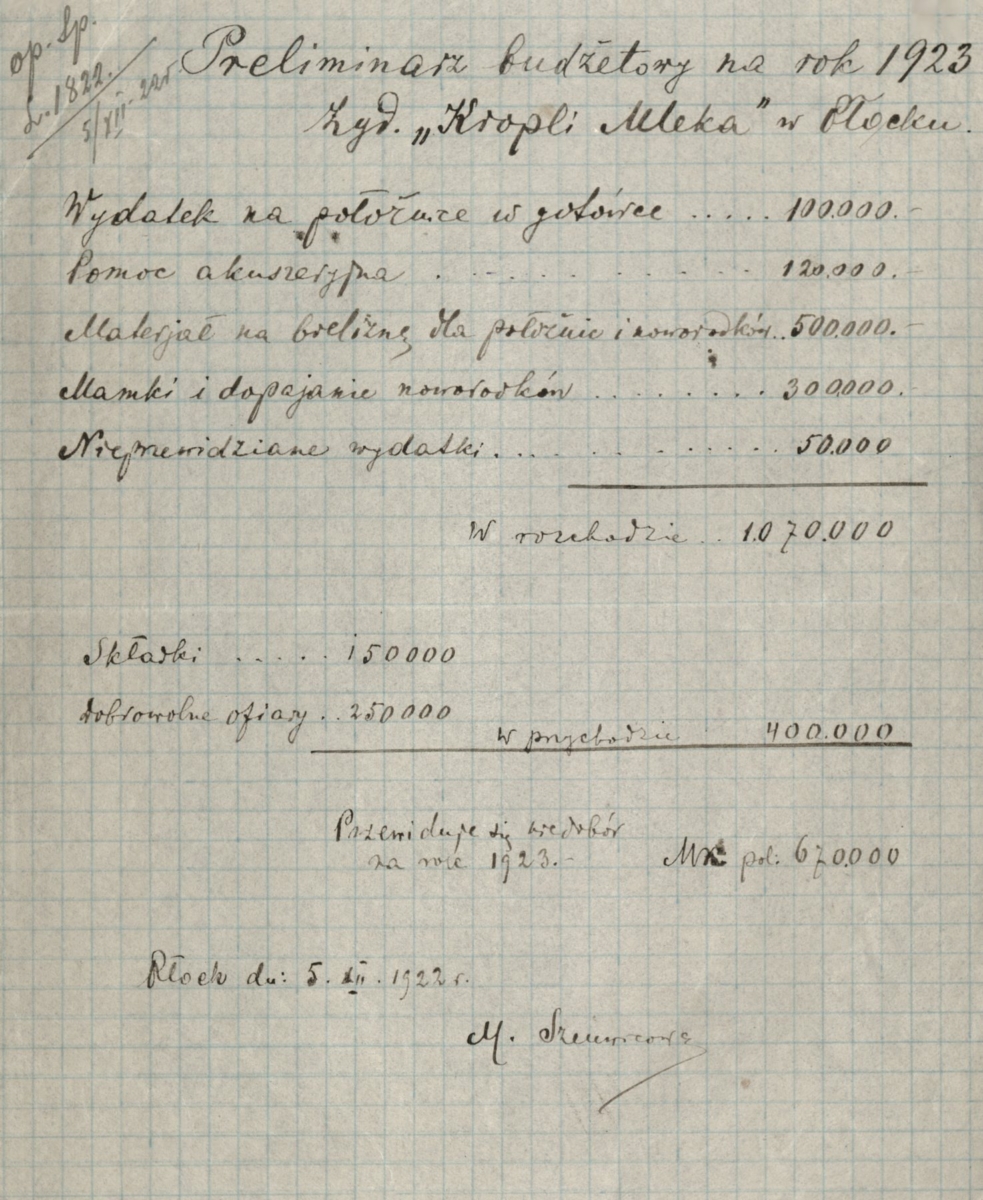 op. Sp.
L. 1822.
5/XII-22r
Preliminarz budżetowy na rok 1923
Żyd. „Kropli Mleka" w Płocku.
Wydatek na położnice w gotówce ..... 100.000.-
Pomoc akuszeryjna . . . . . . . . . 120.000.-
Materjał na bieliznę dla położnic i noworodków.. 500.000.-
Mamki i dopajanie noworodków ........ 300.000.
Nieprzewidziane wydatki. . . . . . . . . 50.000
W rozchodzie .. 1.070.000
Składki ..... 150000
Dobrowolne ofiary .. 250000
w przychodzie 400.000
Przewiduje się niedobór
na rok 1923.- Mk pol: 670.000
Płock dn: 5. XII. 1922 r.
M.